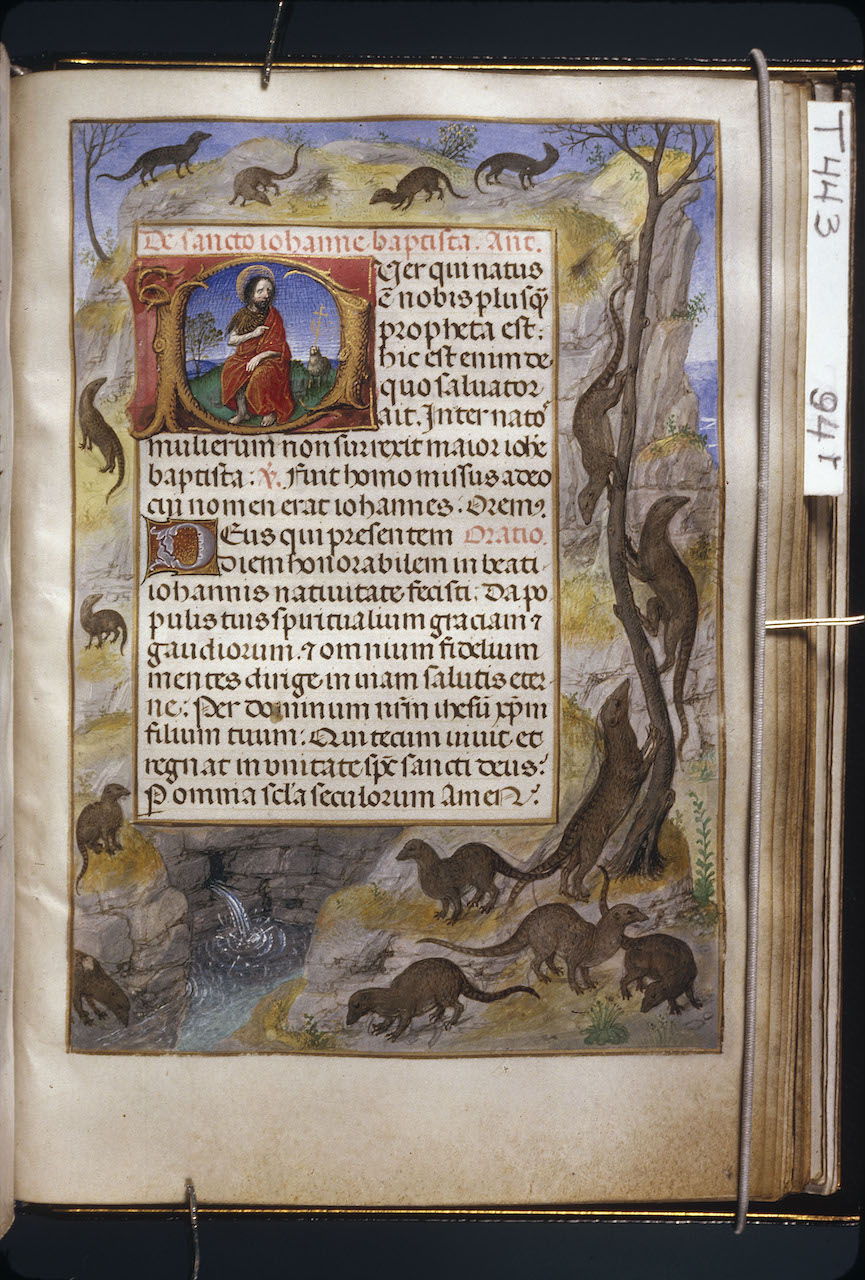 De sancto iohanne baptista. Ant.
Puer qui natus
ē nobis plusq̄
propheta est:
hic est enim de
quo saluator
ait. Inter nato
mulierum non surrexit maior iohē
baptista: ℣. Fuit homo missus a deo
cui nomen erat iohannes. Orem⁹.
Deus qui presentem Oratio.
diem honorabilem in beati
iohannis natiuitate fecisti: da po
pulis tuis spiritualium graciam ⁊
gaudiorum. ⁊ omnium fidelium
mentes dirige in uiam salutis eter
ne: Per dominum nr̄m ihesū xp̄m
filium tuum: Qui tecum uiuit et
regnat in vnitate sp̄c sancti deus:
P omnia sc̄la seculorum Amen:
T443
94r